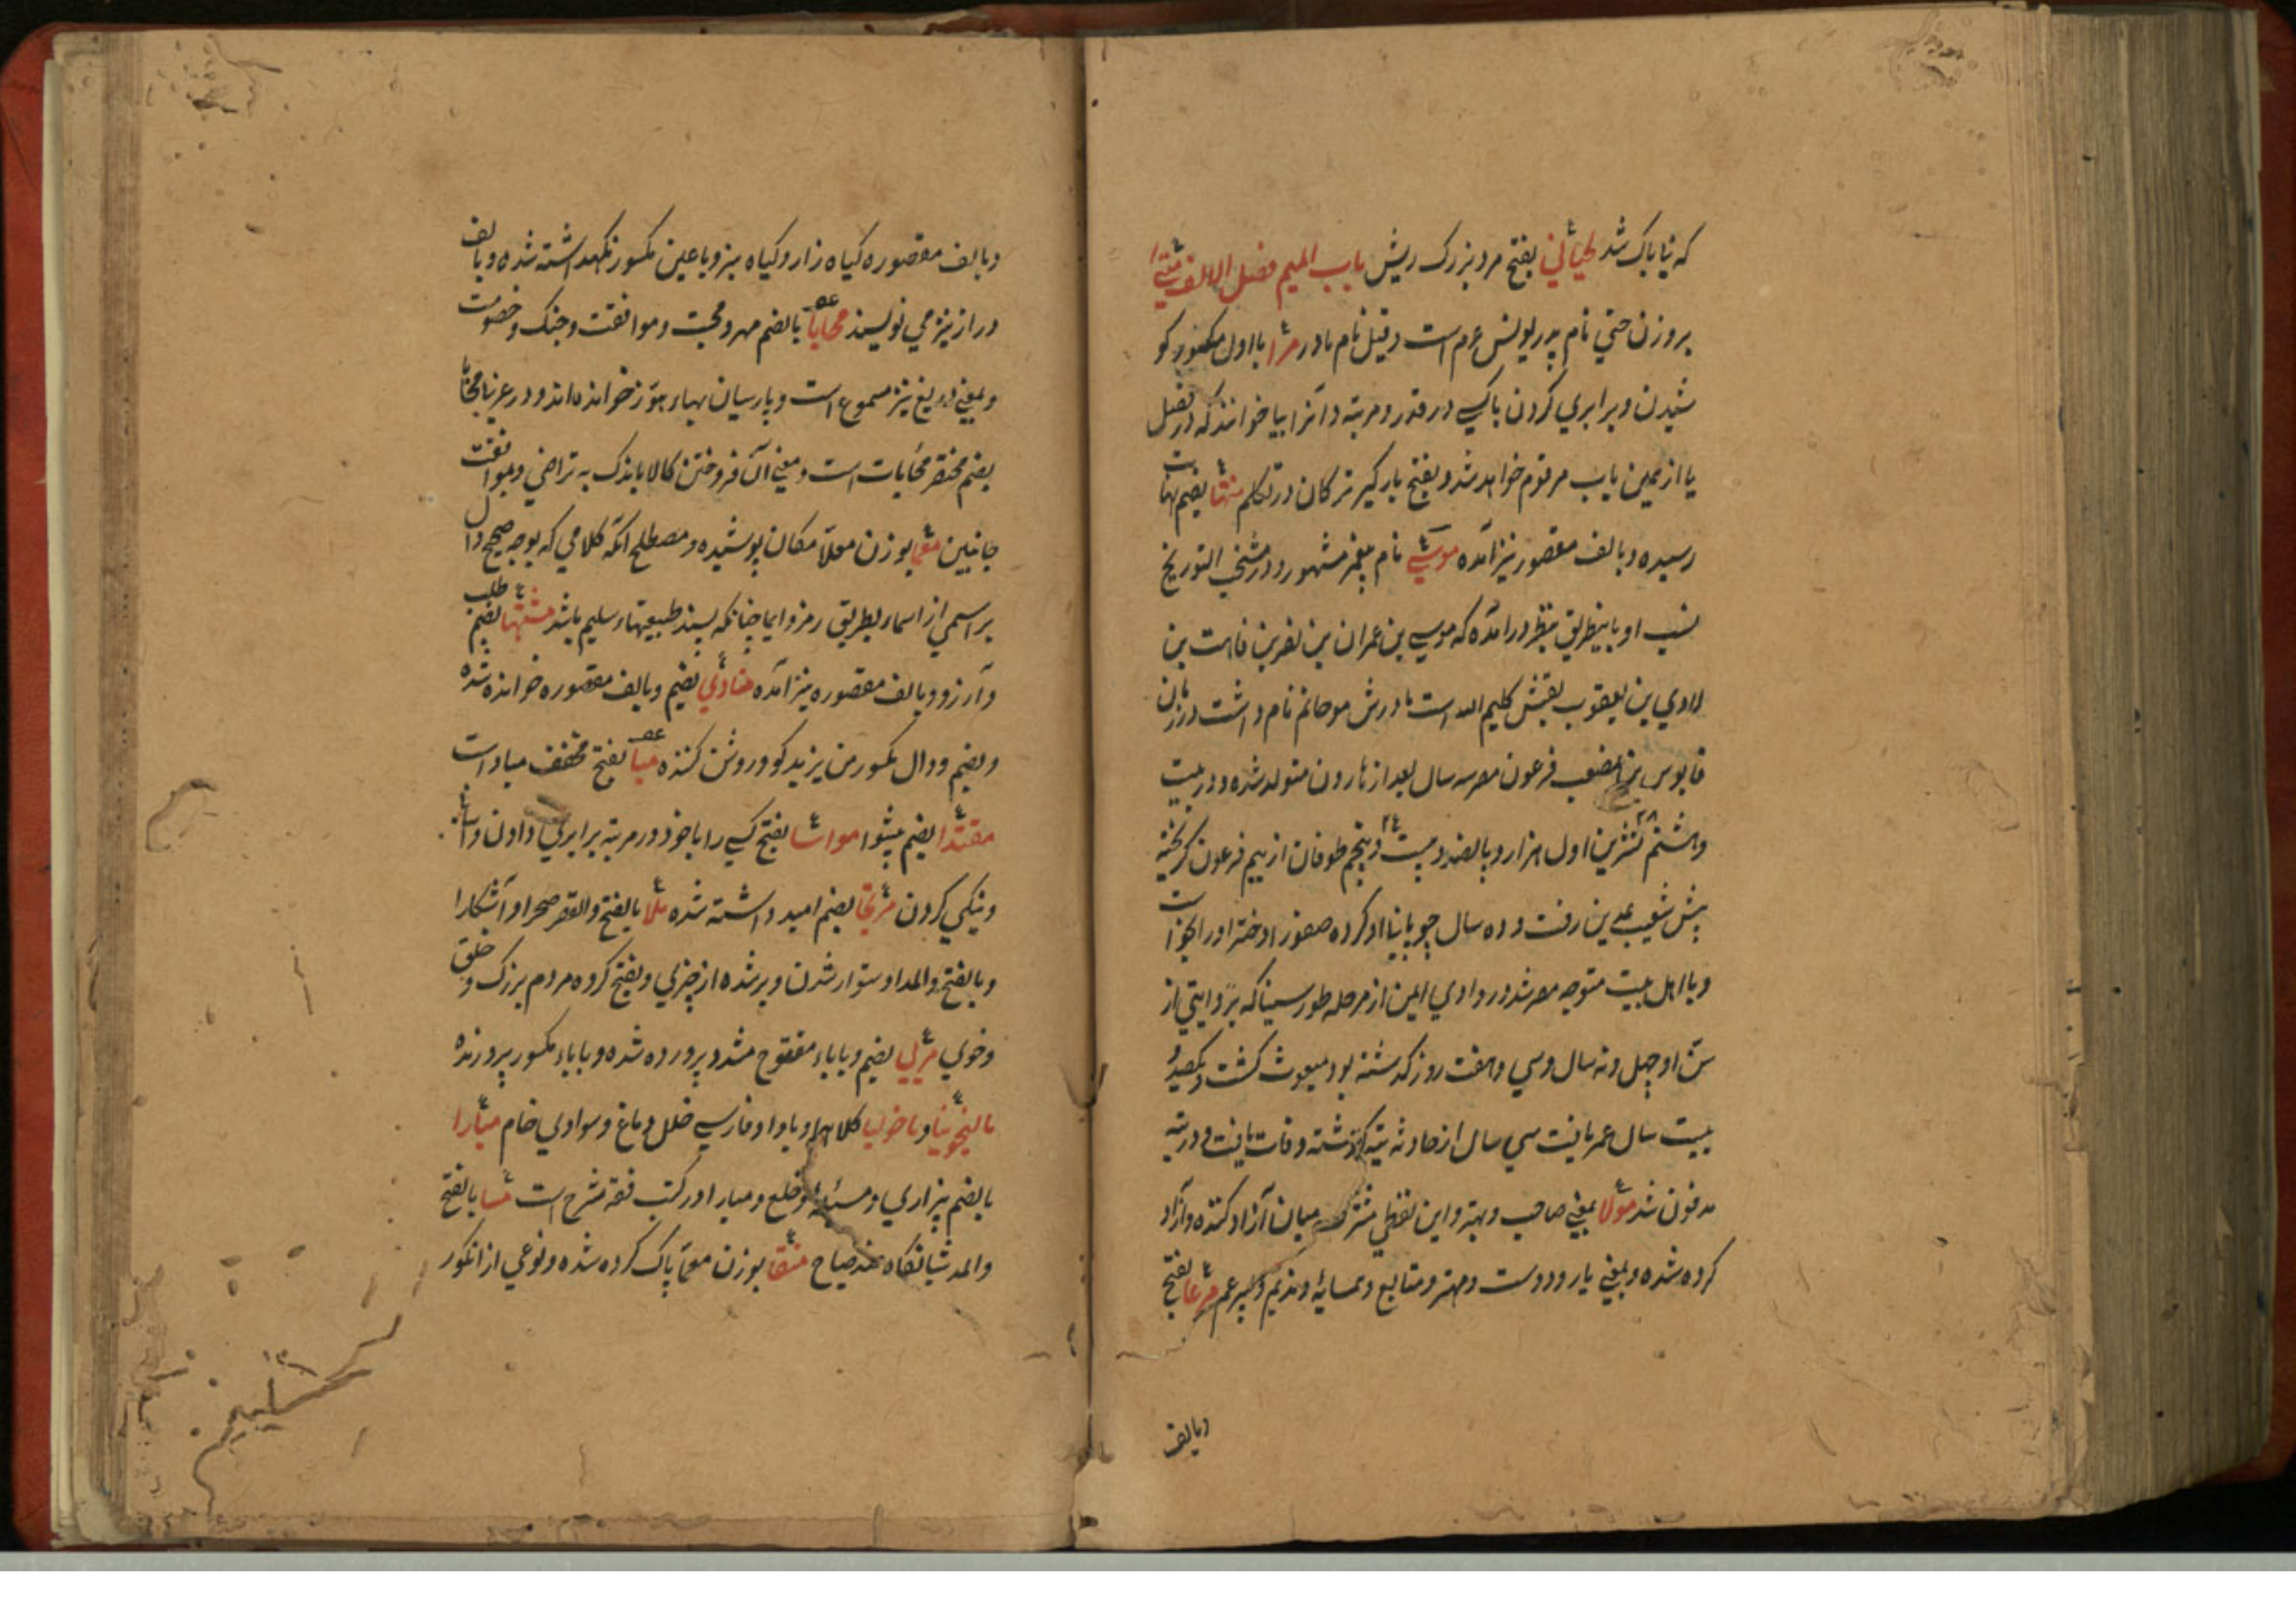 که ناپاک شد لحیانی بفتح مرد بزرک ریش باب المیم فصل الالف متّی
بر وزن حتی نام پدر یونس عم است و قیل نام مادر مرا با اول مکسور کو
شیدن و برابری کردن باکسی در قدر و مرتبه و آنرا بیا خوانند که در فصل
یا از همین باب مرقوم خواهد شد و بفتح بارگیر ترکان در تکلم منتها بضم نهایت
رسیده و بالف مقصور نیز آمده موسی نام پیغمبر مشهور و در منتخب التوریخ
نسب او باینطریق بنظر درآمده که موسی بن عمران بن یغرین فاهت بن
لاوی بن یعقوب لقبش کلیم الله است مادرش موحانم نام داشت در زمان
قابوس بن مصعب فرعون مصر سه سال بعد از هارون متولد شده و در بیست
و هشتم تشرین اول هزار و پانصد و بیست و پنجم طوفان از بیم فرعون کریخته
پیش شعیب بمدین رفت و ده سال چوپانیِ او کرده صفورا دختر او را بخواست
و با اهل بیت متوجه مصر شد در وادی ایمن از مرحله طور سینا که بروایتی از
سن او چهل و نه سال و سی و هفت روز کذشته بود مبعوث کشت و یکصد و
بیست سال عمر یافت سی سال از حادثه تیه کذشته وفات یافت و در تیه
مدفون شد مولا بمعنی صاحب و بهتر و این لفظی مشترک میان آزاد کننده و آزاد
کرده شده و بمعنی یار و دوست و مهتر و متابع و همسایه و ندیم و پسر عم مرعا بفتح
وبالف
وبالف مقصوره کیاه زار و کیاه بیز و با عین مکسور نکهداشته شده و بالف
دراز نیز می نویسند محابا بالضم مهر و محبت و موافقت و جنک و خصومت
و بمعنی دریغ نیز مسموع است و پارسیان بهاء هوّز خوانده اند و در عربی محابا
بضم مختصر محابات است و معنی آن فروختن کالا باندک به تراضی و بموافقت
جانبین معما بوزن معلا مکان پوشیده و مصطلح آنکه کلامی که بوجه صحیح دال
بر اسمی از اسماء بطریق رمز و ایما چنانکه پسند طبیعتهاء سلیم باشد مشتها بضم طلب
و آرزو و بالف مقصوره نیز آمده منادی بضم و بالف مقصوره خوانده شده
و بضم و دال مکسور من یزید کو و روشن کننده مبا بفتح مخفف مباد است
مقتدا بضم پیشوا مواسا بفتح کسی را با خود در مرتبه برابری دادن و
و نیکی کردن مرتجا بضم امید داشته شده ملا بالفتح والقصر صحرا و آشکارا
و بالفتح والمد استوار شدن و پر شده از چیزی و بفتح کروه مردم بزرک و خلق
و خوی مربی بضم و باباء مفتوح مشدد پرورده شده و باباء مکسور پرورنده
مالیخولیا و ماخولیا کلاهما و با واو فارسی خلل دماغ و سوادی خام مبارا
بالضم بیزاری و مسئله خلع و مبارا در کتب فقه مشرح است مسا بالفتح
والمد شبانکاه ضد صباح منقا بوزن معما پاک کرده شده و نوعی از انکور